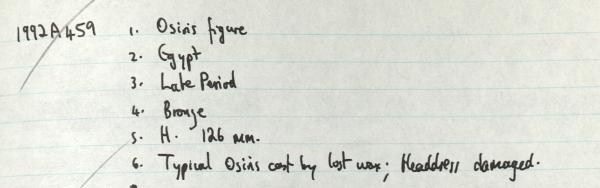 1992A459 1. Osiris figure
2. Egypt
3. Late Period
4. Bronze
5. H. 126 mm.
6. Typical Osiris cast by lost wax; Headdress damaged.